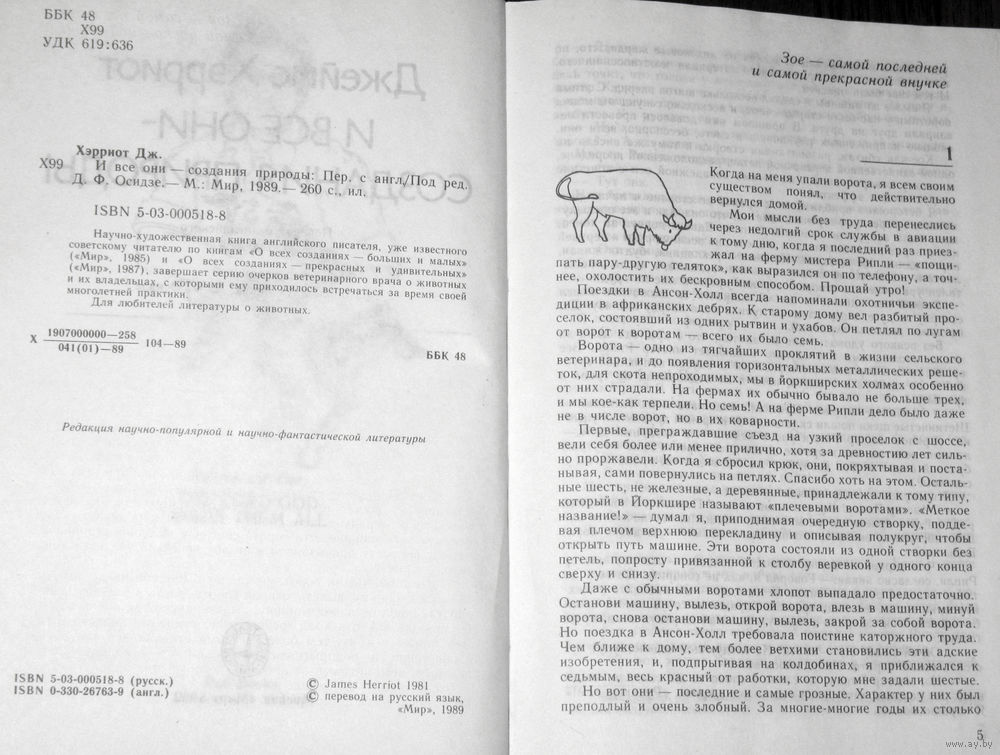 ББК 48
Х99
УДК 619:636
Хэрриот Дж.
Х99 И все они — создания природы: Пер. с англ./Под ред.
Д. Ф. Осидзе.— М.: Мир, 1989.— 260 с., ил.
ISBN 5-03-000518-8
Научно-художественная книга английского писателя, уже известного
советскому читателю по книгам «О всех созданиях — больших и малых»
(«Мир», 1985) и «О всех созданиях — прекрасных и удивительных»
(«Мир», 1987), завершает серию очерков ветеринарного врача о животных
и их владельцах, с которыми ему приходилось встречаться за время своей
многолетней практики.
Для любителей литературы о животных.
Х 1907000000—258
041(01)—89 104—89
ББК 48
Редакция научно-популярной и научно-фантастической литературы
ISBN 5-03-000518-8 (русск.)
ISBN 0-330-26763-9 (англ.)
© James Herriot 1981
© перевод на русский язык,
«Мир», 1989
Зое — самой последней
и самой прекрасной внучке
1
Когда на меня упали ворота, я всем своим
существом понял, что действительно
вернулся домой.
Мои мысли без труда перенеслись
через недолгий срок службы в авиации
к тому дню, когда я последний раз приез-
жал на ферму мистера Рипли — «пощи-
пать пару-другую теляток», как выразился он по телефону, а точ-
нее, охолостить их бескровным способом. Прощай утро!
Поездки в Ансон-Холл всегда напоминали охотничьи экспе-
диции в африканских дебрях. К старому дому вел разбитый про-
селок, состоявший из одних рытвин и ухабов. Он петлял по лугам
от ворот к воротам — всего их было семь.
Ворота — одно из тягчайших проклятий в жизни сельского
ветеринара, и до появления горизонтальных металлических реше-
ток, для скота непроходимых, мы в йоркширских холмах особенно
от них страдали. На фермах их обычно бывало не больше трех,
и мы кое-как терпели. Но семь! А на ферме Рипли дело было даже
не в числе ворот, но в их коварности.
Первые, преграждавшие съезд на узкий проселок с шоссе,
вели себя более или менее прилично, хотя за древностию лет силь-
но проржавели. Когда я сбросил крюк, они, покряхтывая и поста-
нывая, сами повернулись на петлях. Спасибо хоть на этом. Осталь-
ные шесть, не железные, а деревянные, принадлежали к тому типу,
который в Йоркшире называют «плечевыми воротами». «Меткое
название!» — думал я, приподнимая очередную створку, подде-
вая плечом верхнюю перекладину и описывая полукруг, чтобы
открыть путь машине. Эти ворота состояли из одной створки без
петель, попросту привязанной к столбу веревкой у одного конца
сверху и снизу.
Даже с обычными воротами хлопот выпадало предостаточно.
Останови машину, вылезь, открой ворота, влезь в машину, минуй
ворота, снова останови машину, вылезь, закрой за собой ворота.
Но поездка в Ансон-Холл требовала поистине каторжного труда.
Чем ближе к дому, тем более ветхими становились эти адские
изобретения, и, подпрыгивая на колдобинах, я приближался к
седьмым, весь красный от работки, которую мне задали шестые.
Но вот они — последние и самые грозные. Характер у них был
преподлый и очень злобный. За многие-многие годы их столько
5
www.ay.by